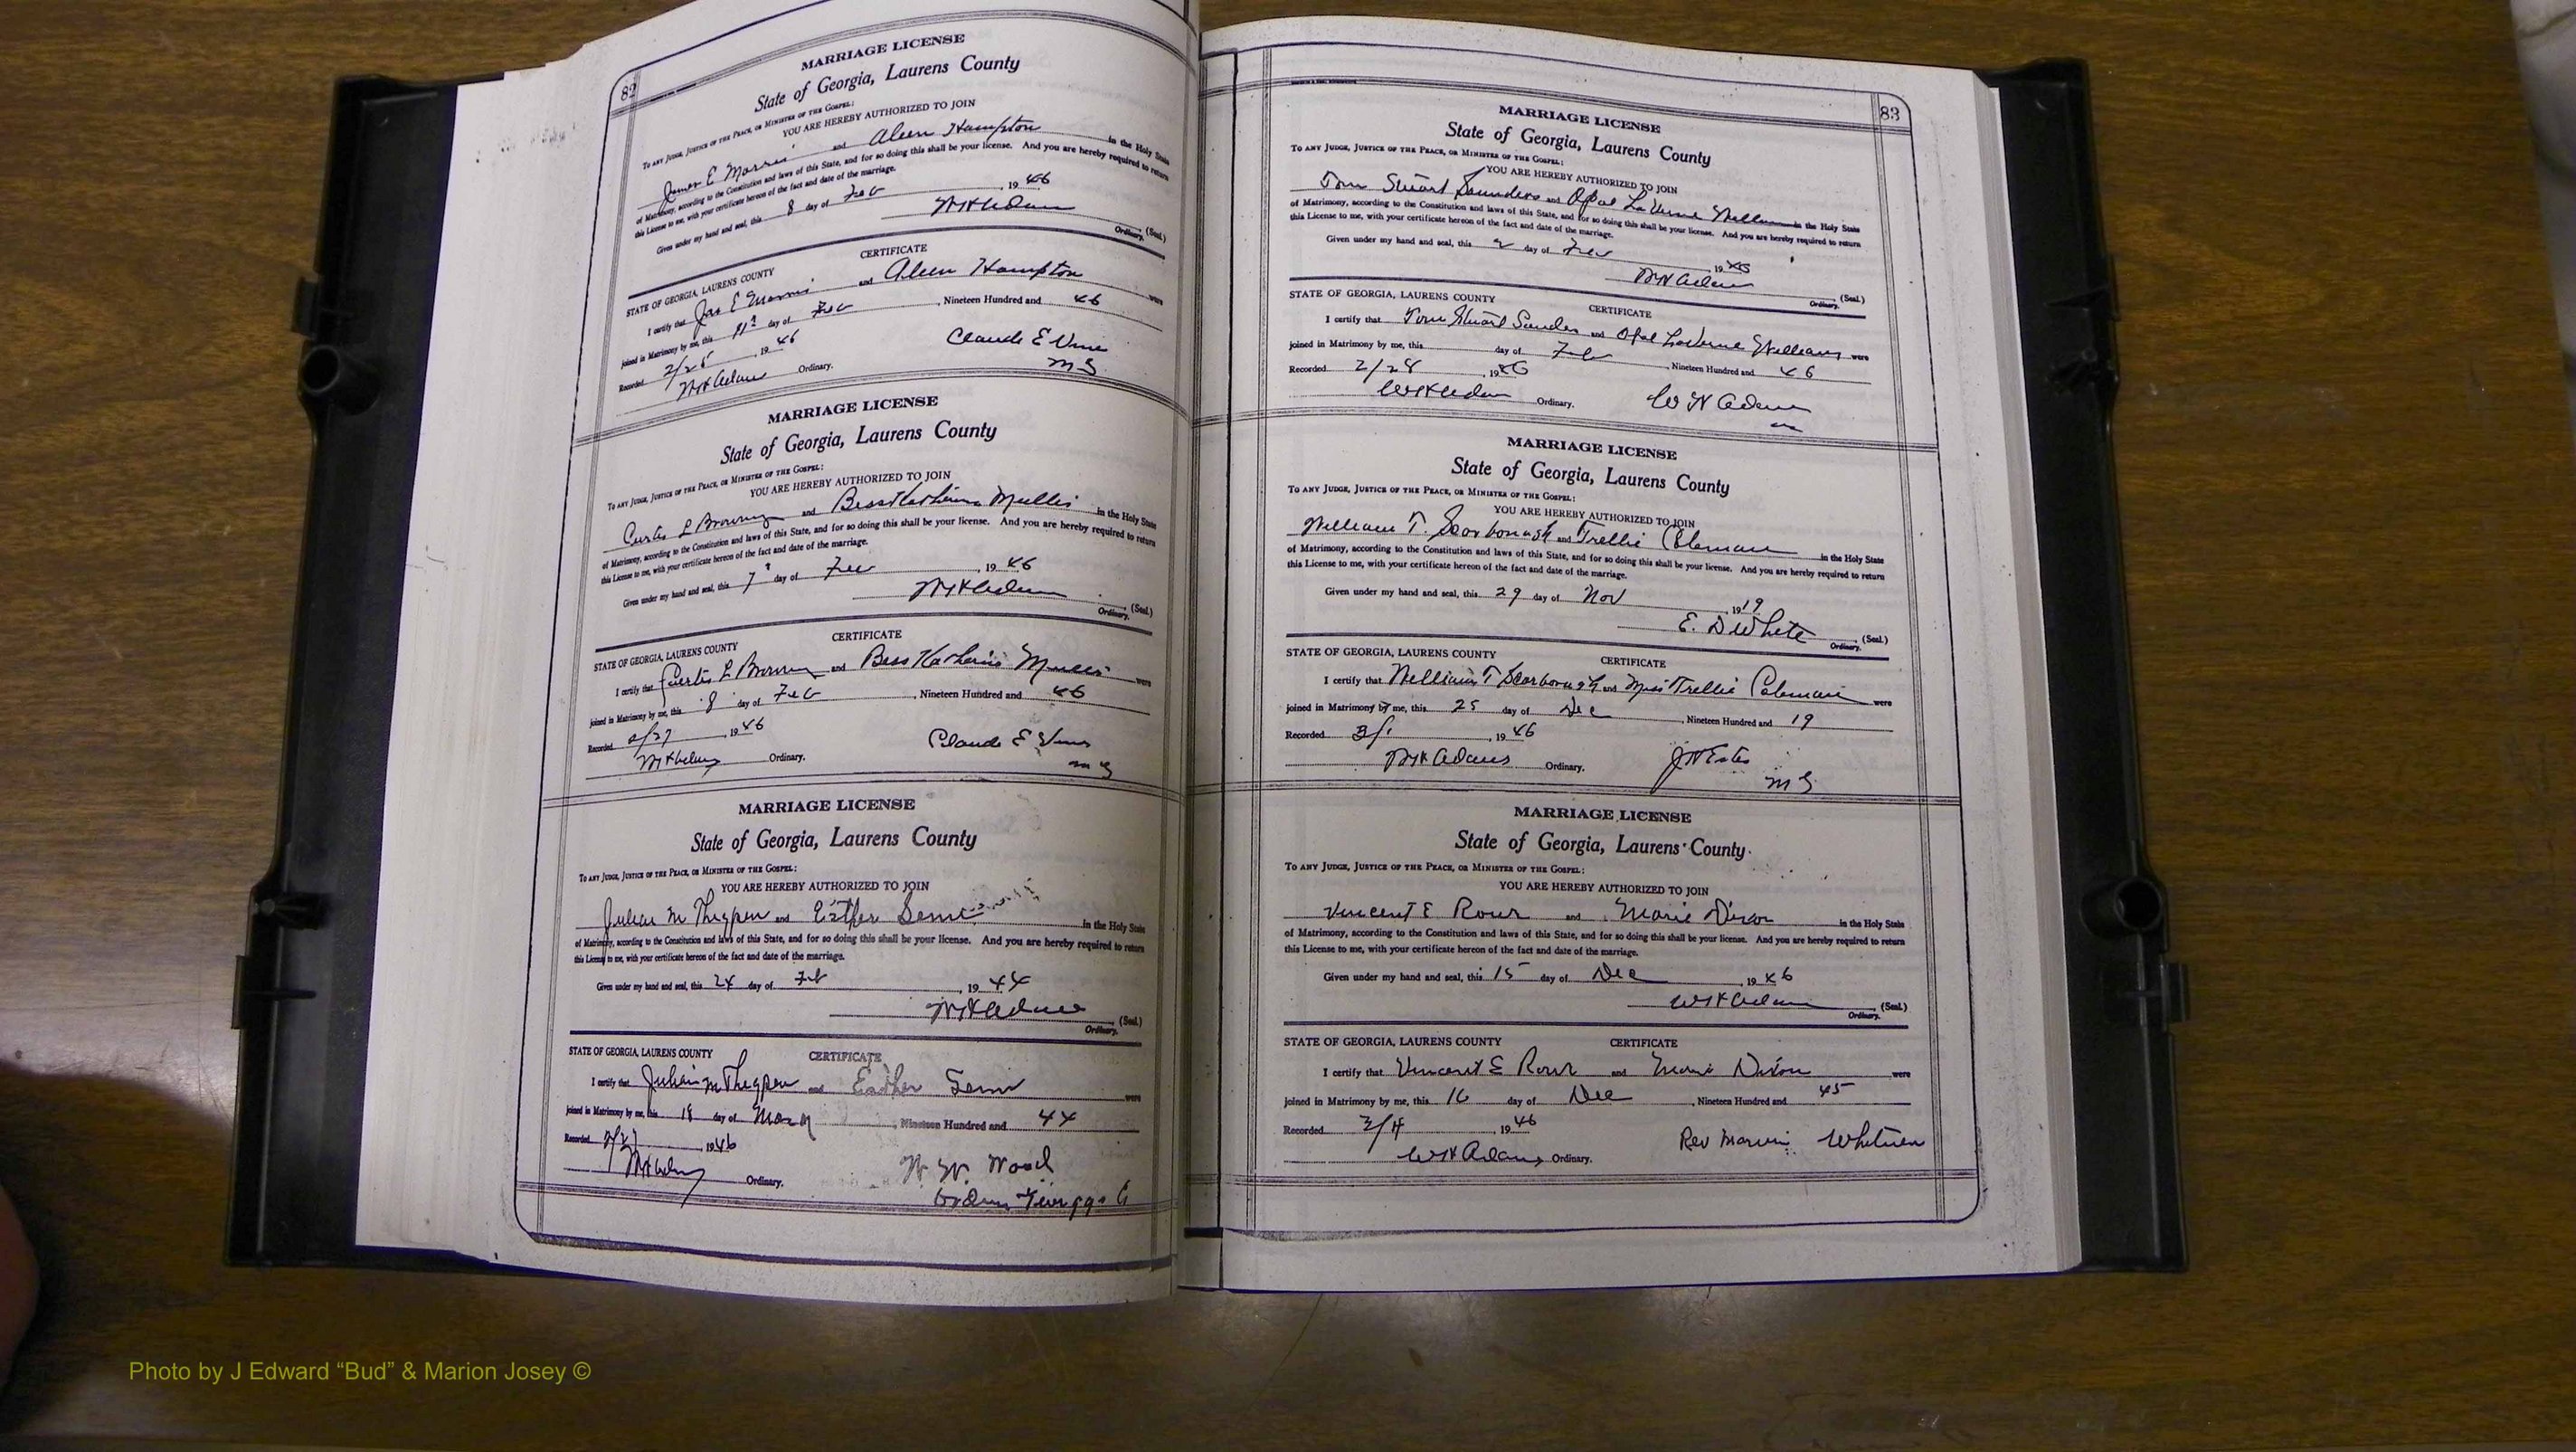 82
MARRIAGE LICENSE
State of Georgia, Laurens County
To any Judge, Justice of the Peace, or Minister of the Gospel:
YOU ARE HEREBY AUTHORIZED TO JOIN
James E Morris and Aleen Hampton in the Holy State
of Matrimony, according to the Constitution and laws of this State, and for so doing this shall be your license. And you are hereby required to return
this License to me, with your certificate hereon of the fact and date of the marriage.
Given under my hand and seal, this 8 day of Feb, 1946
WH Adams (Seal.)
Ordinary.
CERTIFICATE
STATE OF GEORGIA, LAURENS COUNTY
I certify that Jas E Morris and Aleen Hampton were
joined in Matrimony by me, this day of Feb, Nineteen Hundred and 46
Recorded 2/26, 1946 Claude E Vines
WH Adams Ordinary. M G
MARRIAGE LICENSE
State of Georgia, Laurens County
To any Judge, Justice of the Peace, or Minister of the Gospel:
YOU ARE HEREBY AUTHORIZED TO JOIN
Curtis L and Bess Katherine Mullis in the Holy State
of Matrimony, according to the Constitution and laws of this State, and for so doing this shall be your license. And you are hereby required to return
this License to me, with your certificate hereon of the fact and date of the marriage.
Given under my hand and seal, this 7 day of Feb, 1946
WH Adams (Seal.)
Ordinary.
CERTIFICATE
STATE OF GEORGIA, LAURENS COUNTY
I certify that Curtis L and Bess Katherine Mullis were
joined in Matrimony by me, this 8 day of Feb, Nineteen Hundred and 46
Recorded 2/27, 1946 Claude E Vines
WH Adams Ordinary. M G
MARRIAGE LICENSE
State of Georgia, Laurens County
To any Judge, Justice of the Peace, or Minister of the Gospel:
YOU ARE HEREBY AUTHORIZED TO JOIN
Julian M Thigpen and Esther in the Holy State
of Matrimony, according to the Constitution and laws of this State, and for so doing this shall be your license. And you are hereby required to return
this License to me, with your certificate hereon of the fact and date of the marriage.
Given under my hand and seal, this 24 day of Feb, 1944
WH Adams (Seal.)
Ordinary.
STATE OF GEORGIA, LAURENS COUNTY CERTIFICATE
I certify that Julian M Thigpen and Esther were
joined in Matrimony by me, this 18 day of, Nineteen Hundred and 44
Recorded 2/27, 1946
WH Adams Ordinary. W. W. Wood
83
MARRIAGE LICENSE
State of Georgia, Laurens County
To any Judge, Justice of the Peace, or Minister of the Gospel:
YOU ARE HEREBY AUTHORIZED TO JOIN
Tom Stuart Saunders and Opal LaVerne Williams in the Holy State
of Matrimony, according to the Constitution and laws of this State, and for so doing this shall be your license. And you are hereby required to return
this License to me, with your certificate hereon of the fact and date of the marriage.
Given under my hand and seal, this 2 day of Feb, 1946
WH Adams (Seal.)
Ordinary.
STATE OF GEORGIA, LAURENS COUNTY CERTIFICATE
I certify that Tom Stuart Sander and Opal LaVerne Williams were
joined in Matrimony by me, this day of Feb, Nineteen Hundred and 46
Recorded 2/28, 1946
WH Adams Ordinary. W H Adams
MARRIAGE LICENSE
State of Georgia, Laurens County
To any Judge, Justice of the Peace, or Minister of the Gospel:
YOU ARE HEREBY AUTHORIZED TO JOIN
William T. Scarborough and Trellie Coleman in the Holy State
of Matrimony, according to the Constitution and laws of this State, and for so doing this shall be your license. And you are hereby required to return
this License to me, with your certificate hereon of the fact and date of the marriage.
Given under my hand and seal, this 29 day of Nov, 1919
E. D White (Seal.)
Ordinary.
STATE OF GEORGIA, LAURENS COUNTY CERTIFICATE
I certify that William T Scarborough and Miss Trellie Coleman were
joined in Matrimony by me, this 25 day of Dec, Nineteen Hundred and 19
Recorded 3/1, 1946
WH Adams Ordinary. J N Estes
M G
MARRIAGE LICENSE
State of Georgia, Laurens County
To any Judge, Justice of the Peace, or Minister of the Gospel:
YOU ARE HEREBY AUTHORIZED TO JOIN
Vincent E Rour and Marie Dixon in the Holy State
of Matrimony, according to the Constitution and laws of this State, and for so doing this shall be your license. And you are hereby required to return
this License to me, with your certificate hereon of the fact and date of the marriage.
Given under my hand and seal, this 15 day of Dec, 1946
WH Adams (Seal.)
Ordinary.
STATE OF GEORGIA, LAURENS COUNTY CERTIFICATE
I certify that Vincent E Rour and Marie Dixon were
joined in Matrimony by me, this 16 day of Dec, Nineteen Hundred and 45
Recorded 3/4, 1946 Rev Marvin
WH Adams Ordinary.
Photo by J Edward “Bud” & Marion Josey ©